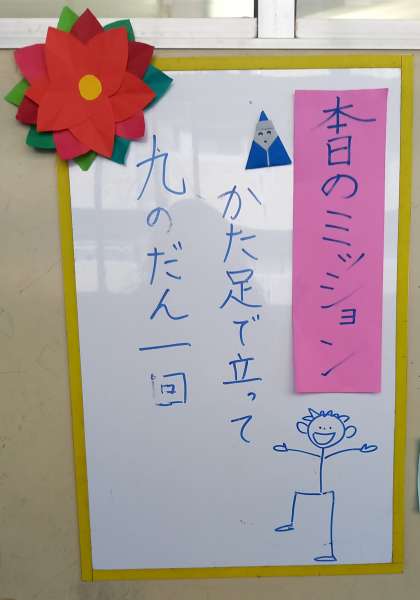 本日のミッション
かた足で立って
九のだん一回